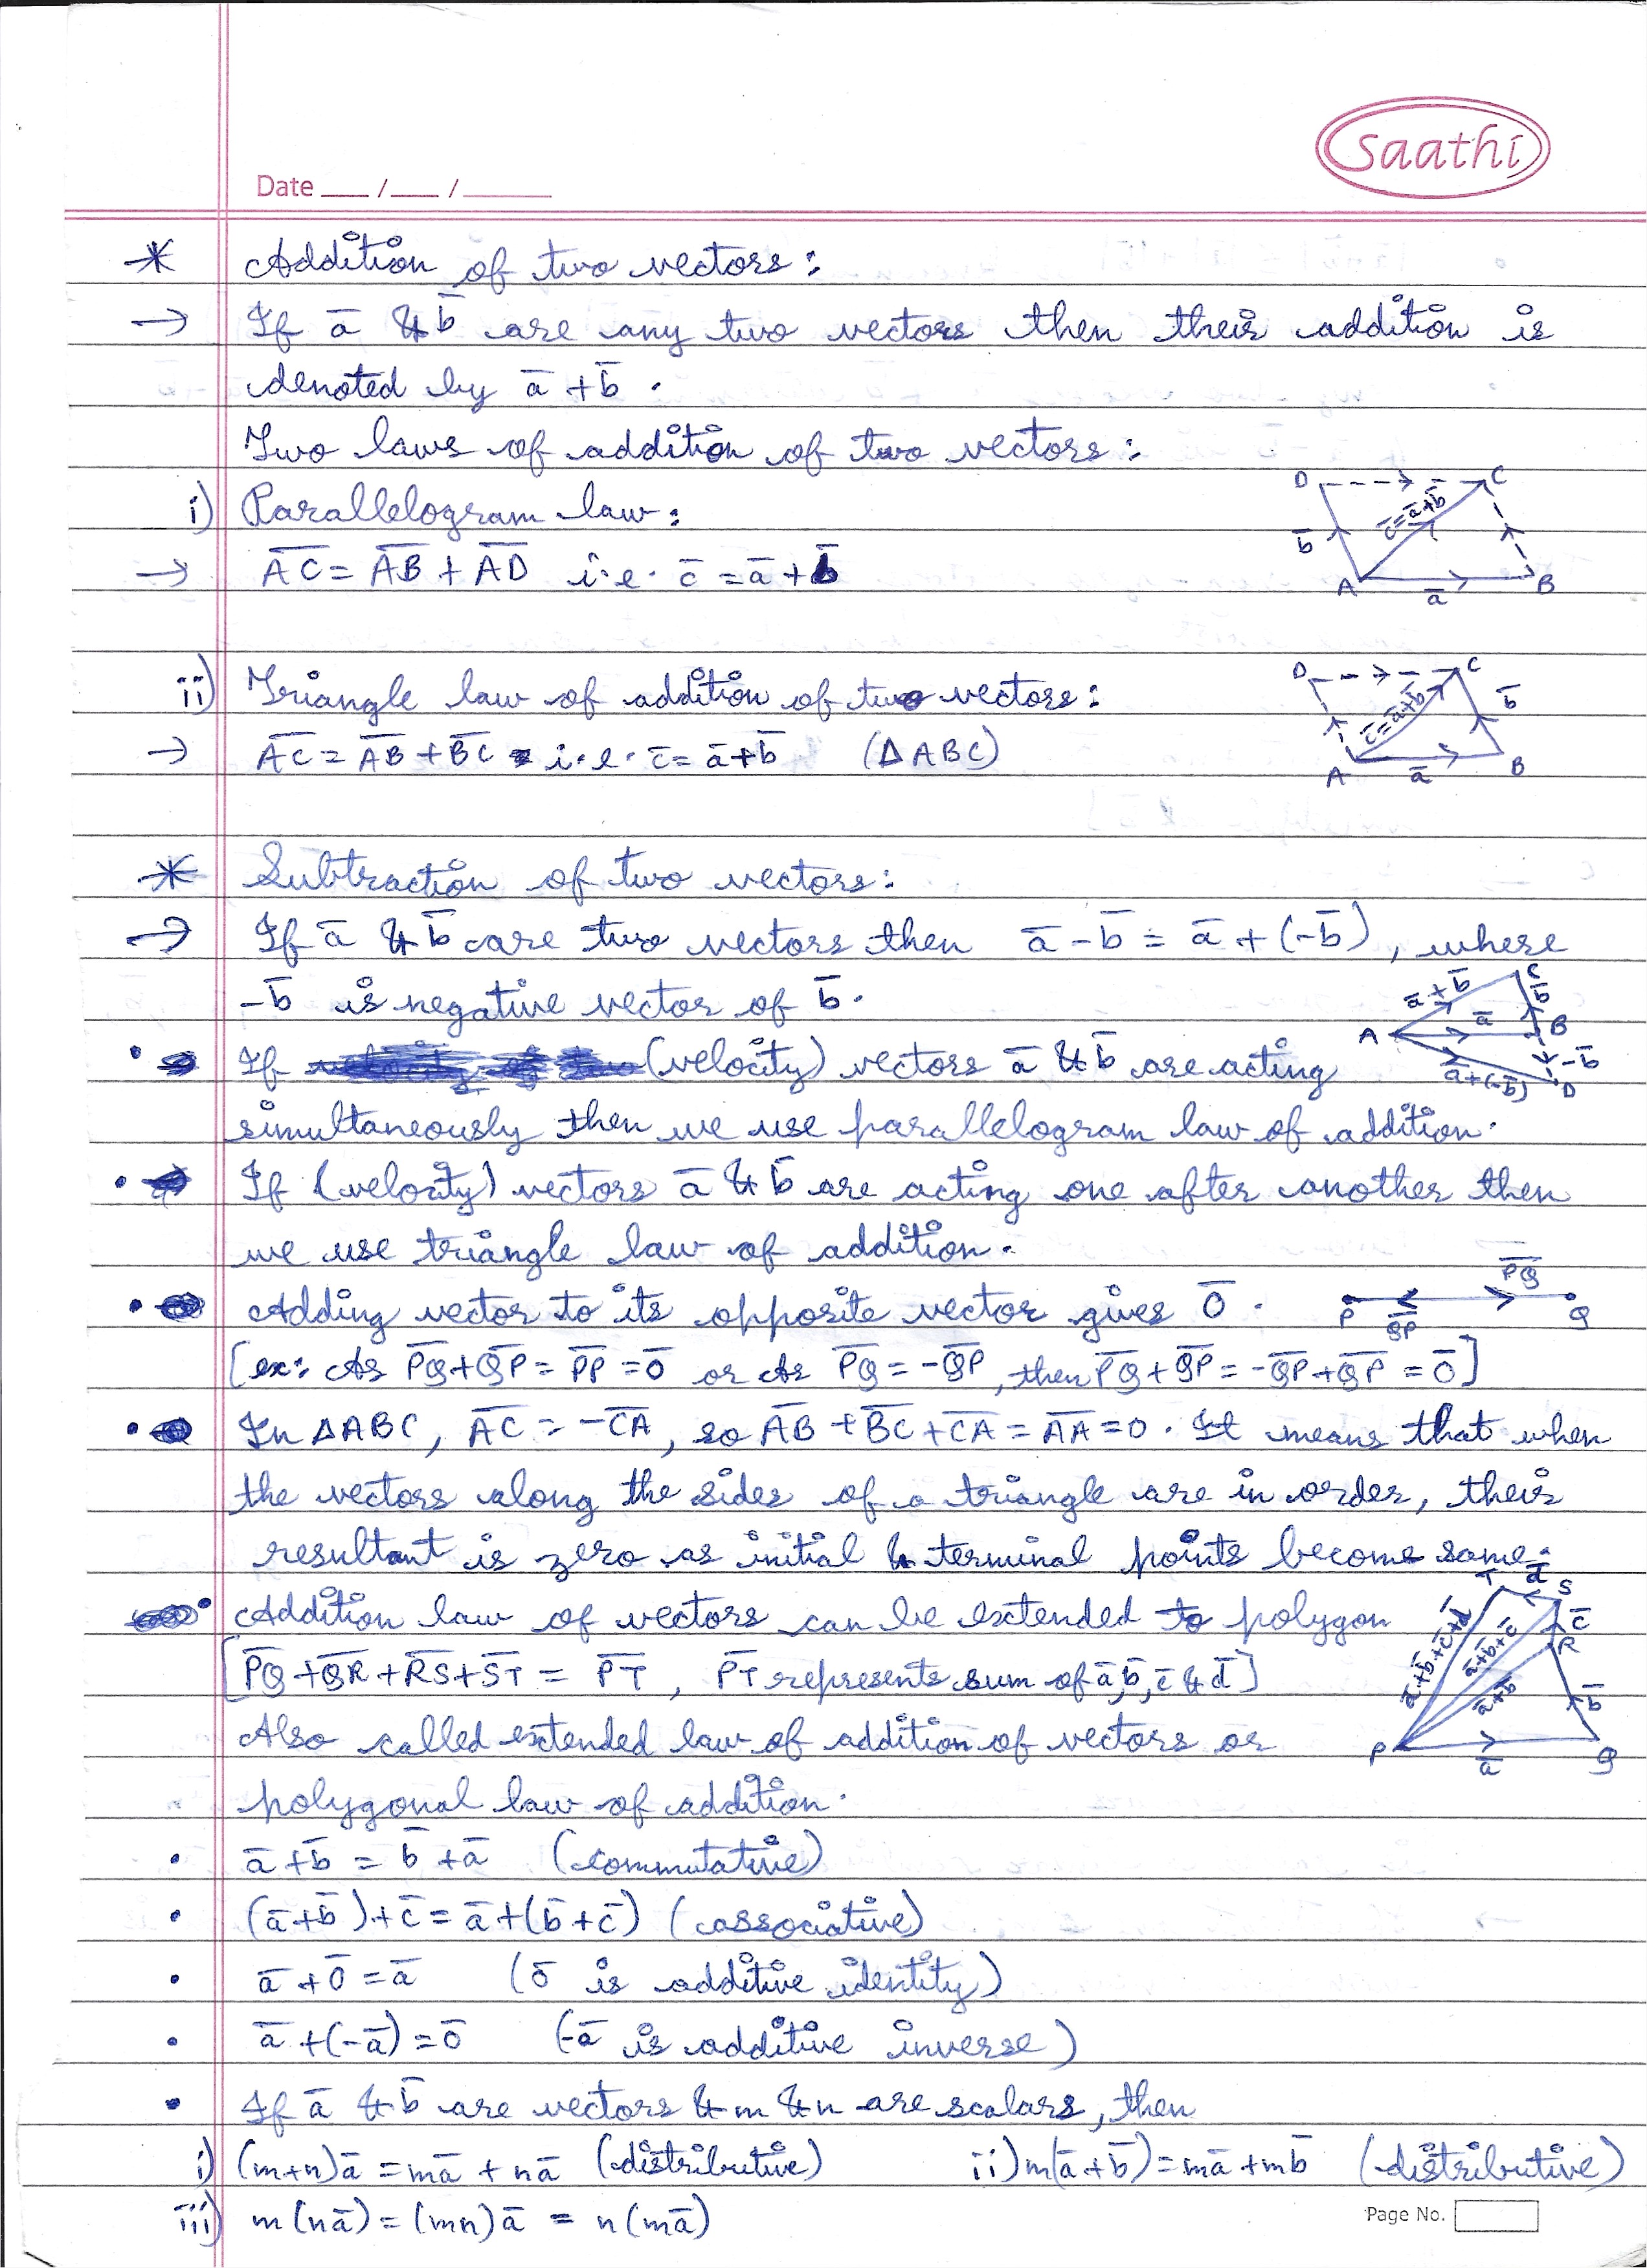 saathi
Date ___ /___ /______
* Addition of two vectors:
→ If a̅ & b̅ are any two vectors then their addition is
denoted by a̅ + b̅.
Two laws of addition of two vectors:
i) Parallelogram law:
→ A̅C̅ = A̅B̅ + A̅D̅ i.e. c̅ = a̅ + b̅
D C
b̅ c̅=a̅+b̅
A a̅ B
ii) Triangle law of addition of two vectors:
→ A̅C̅ = A̅B̅ + B̅C̅ i.e. c̅ = a̅+b̅ (ΔABC)
D C
c̅=a̅+b̅ b̅
A a̅ B
* Subtraction of two vectors:
→ If a̅ & b̅ are two vectors then a̅ - b̅ = a̅ + (-b̅), where
-b̅ is negative vector of b̅.
C
a̅+b̅ b̅
A a̅ B
-b̅
a̅+(-b̅) D
• If (velocity) vectors a̅ & b̅ are acting
simultaneously then we use parallelogram law of addition.
• If (velocity) vectors a̅ & b̅ are acting one after another then
we use triangle law of addition.
• Adding vector to its opposite vector gives 0̅.
P̅Q̅
P Q̅P̅ Q
[ex: As P̅Q̅+Q̅P̅ = P̅P̅ = 0̅ or As P̅Q̅ = -Q̅P̅, then P̅Q̅+Q̅P̅ = -Q̅P̅+Q̅P̅ = 0̅]
• In ΔABC, A̅C̅ = -C̅A̅, so A̅B̅ + B̅C̅ + C̅A̅ = A̅A̅ = 0. It means that when
the vectors along the sides of a triangle are in order, their
resultant is zero as initial & terminal points become same.
• Addition law of vectors can be extended to polygon
[P̅Q̅ + Q̅R̅ + R̅S̅ + S̅T̅ = P̅T̅, P̅T̅ represents sum of a̅, b̅, c̅ & d̅]
T d̅ S
c̅
R
a̅+b̅+c̅+d̅ a̅+b̅+c̅ a̅+b̅ b̅
P a̅ Q
Also called extended law of addition of vectors or
polygonal law of addition.
• a̅ + b̅ = b̅ + a̅ (commutative)
• (a̅+b̅)+c̅ = a̅+(b̅+c̅) (associative)
• a̅ + 0̅ = a̅ (0̅ is additive identity)
• a̅ + (-a̅) = 0̅ (-a̅ is additive inverse)
• If a̅ & b̅ are vectors & m & n are scalars, then
i) (m+n)a̅ = ma̅ + na̅ (distributive) ii) m(a̅+b̅) = ma̅ + mb̅ (distributive)
iii) m(na̅) = (mn)a̅ = n(ma̅)
Page No.